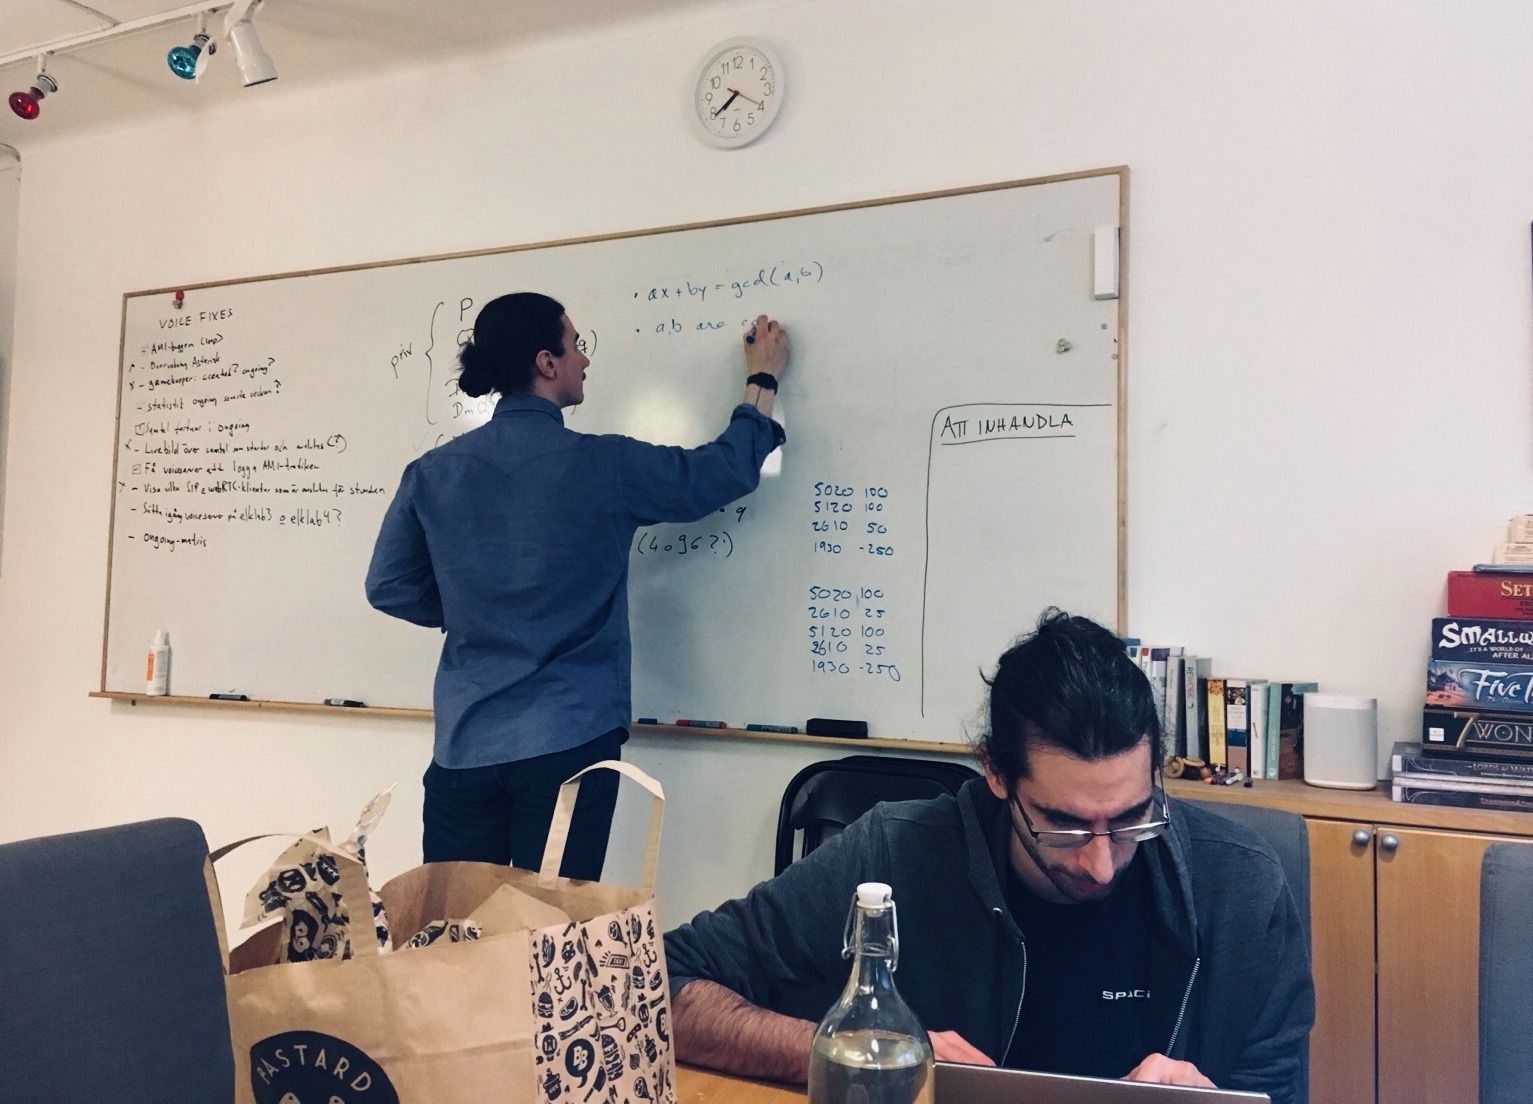 11 12 1
10 2
9 3
8 4
7 6 5
VOICE FIXES
- AMI-buggen
- Övervakning Asterisk
x - gamekeeper: created? ongoing?
- statistik ongoing senaste veckan?
Samtal fastnar i ongoing
x - Livebild över samtal som startar och avslutas (?)
Få voiceserver att logga AMI-trafiken
- Visa vilka SIP & webRTC-klienter som är anslutna för stunden
- Sätta igång voiceserver på elklab3 o elklab4?
- Ongoing-metrics
priv
P
q)
• ax + by = gcd(a,b)
• a,b are
q
(4096?)
5020 100
5120 100
2610 50
1930 -250
5020 100
2610 25
5120 100
2610 25
1930 -250
ATT INHANDLA
SET
SMALLW
IT'S A WORLD OF
AFTER AL
FIVE T
7 WON
LORDS OF WAT
BASTARD
BB
SPACE